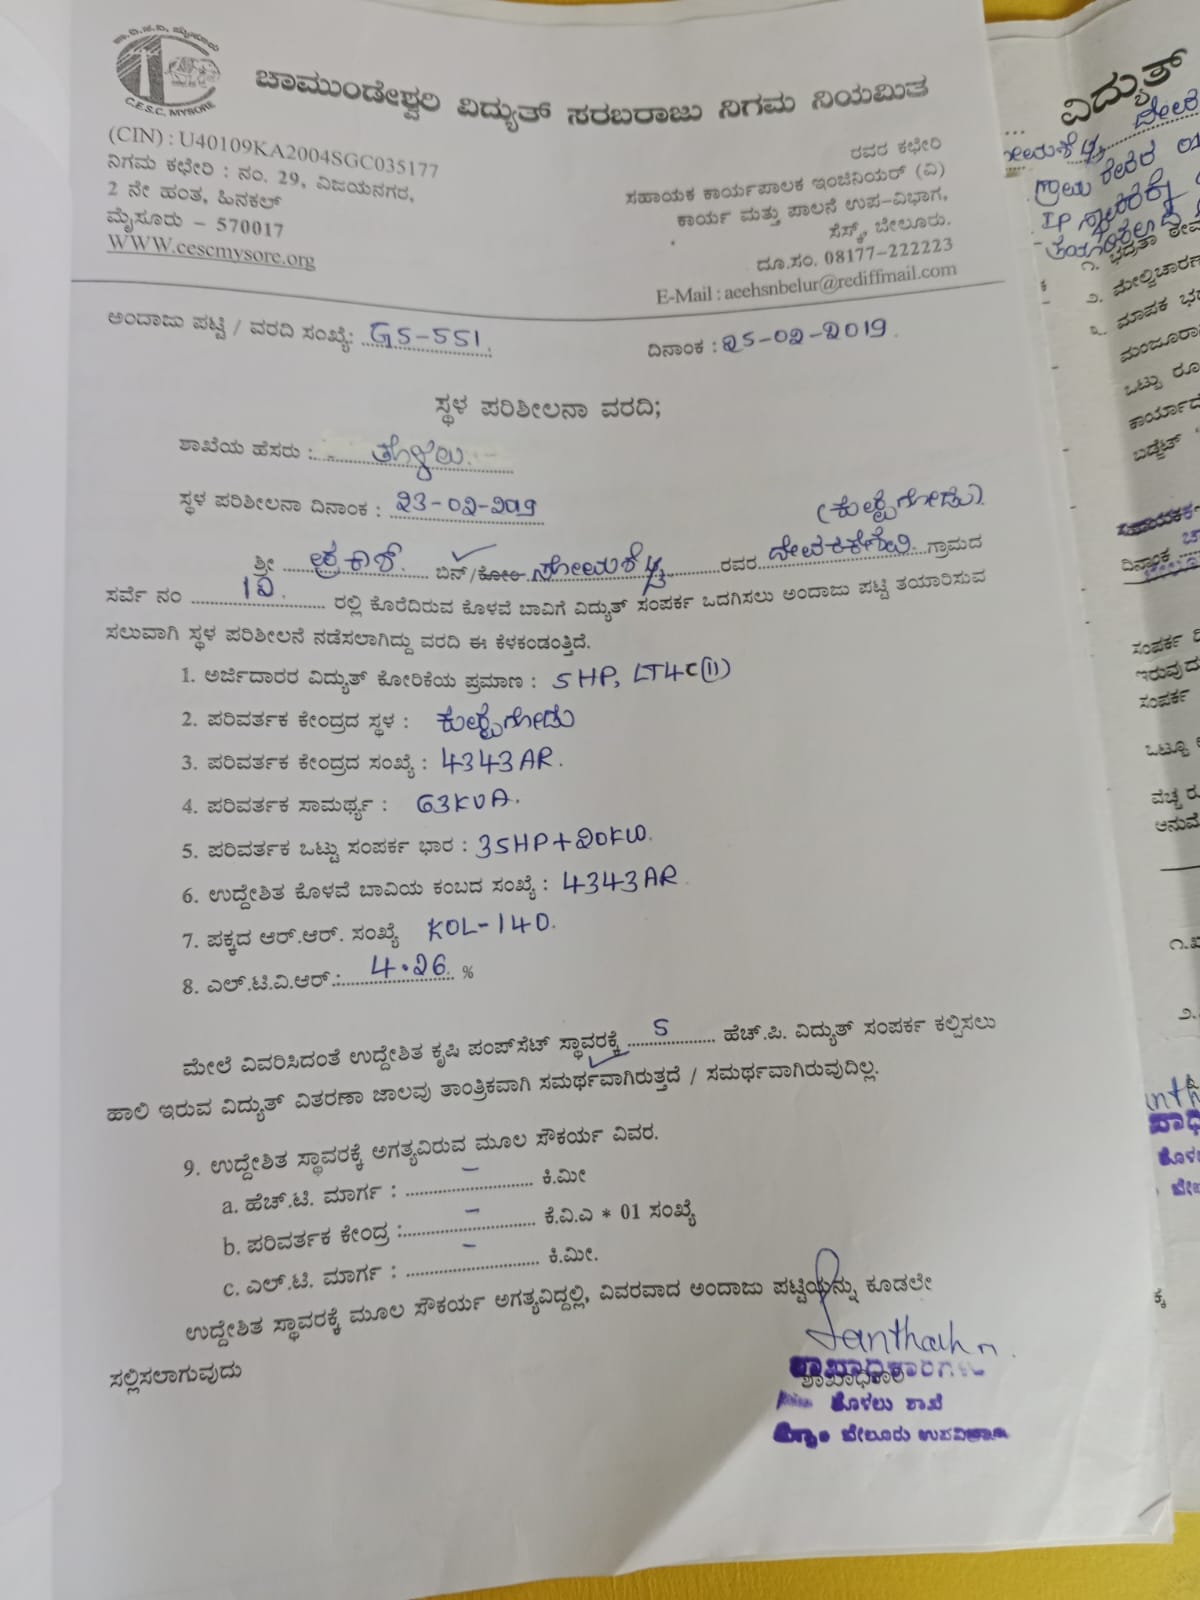 ಚಾ.ವಿ.ಸ.ನಿ, ಮೈಸೂರು
C.E.S.C. MYSORE
ಚಾಮುಂಡೇಶ್ವರಿ ವಿದ್ಯುತ್ ಸರಬರಾಜು ನಿಗಮ ನಿಯಮಿತ
(CIN) : U40109KA2004SGC035177
ನಿಗಮ ಕಛೇರಿ : ನಂ. 29, ವಿಜಯನಗರ,
2 ನೇ ಹಂತ, ಹಿನಕಲ್
ಮೈಸೂರು – 570017
WWW.cescmysore.org
ರವರ ಕಛೇರಿ
ಸಹಾಯಕ ಕಾರ್ಯಪಾಲಕ ಇಂಜಿನಿಯರ್ (ವಿ)
ಕಾರ್ಯ ಮತ್ತು ಪಾಲನೆ ಉಪ-ವಿಭಾಗ,
ಸೆಸ್ಕ್, ಬೇಲೂರು.
ದೂ.ಸಂ. 08177-222223
E-Mail : aeehsnbelur@rediffmail.com
ಅಂದಾಜು ಪಟ್ಟಿ / ವರದಿ ಸಂಖ್ಯೆ: GS-551.
ದಿನಾಂಕ : 25-02-2019.
ಸ್ಥಳ ಪರಿಶೀಲನಾ ವರದಿ;
ಶಾಖೆಯ ಹೆಸರು : ತೊಳಲು.
ಸ್ಥಳ ಪರಿಶೀಲನಾ ದಿನಾಂಕ : 23-02-2019
ಶ್ರೀ ಪ್ರಕಾಶ್. ಬಿನ್/ಕೋಂ ಸೋಮಶೆಟ್ಟಿ ರವರ ಗ್ರಾಮದ
ಸರ್ವೆ ನಂ 12. ರಲ್ಲಿ ಕೊರೆದಿರುವ ಕೊಳವೆ ಬಾವಿಗೆ ವಿದ್ಯುತ್ ಸಂಪರ್ಕ ಒದಗಿಸಲು ಅಂದಾಜು ಪಟ್ಟಿ ತಯಾರಿಸುವ
ಸಲುವಾಗಿ ಸ್ಥಳ ಪರಿಶೀಲನೆ ನಡೆಸಲಾಗಿದ್ದು ವರದಿ ಈ ಕೆಳಕಂಡಂತ್ತಿದೆ.
1. ಅರ್ಜಿದಾರರ ವಿದ್ಯುತ್ ಕೋರಿಕೆಯ ಪ್ರಮಾಣ : 5 HP, LT4C(II)
2. ಪರಿವರ್ತಕ ಕೇಂದ್ರದ ಸ್ಥಳ :
3. ಪರಿವರ್ತಕ ಕೇಂದ್ರದ ಸಂಖ್ಯೆ : 4343AR.
4. ಪರಿವರ್ತಕ ಸಾಮರ್ಥ್ಯ : 63KVA.
5. ಪರಿವರ್ತಕ ಒಟ್ಟು ಸಂಪರ್ಕ ಭಾರ : 35HP+20KW.
6. ಉದ್ದೇಶಿತ ಕೊಳವೆ ಬಾವಿಯ ಕಂಬದ ಸಂಖ್ಯೆ : 4343AR.
7. ಪಕ್ಕದ ಆರ್.ಆರ್. ಸಂಖ್ಯೆ KOL-140.
8. ಎಲ್.ಟಿ.ವಿ.ಆರ್ : 4.26. %
ಮೇಲೆ ವಿವರಿಸಿದಂತೆ ಉದ್ದೇಶಿತ ಕೃಷಿ ಪಂಪ್‌ಸೆಟ್ ಸ್ಥಾವರಕ್ಕೆ 5 ಹೆಚ್.ಪಿ. ವಿದ್ಯುತ್ ಸಂಪರ್ಕ ಕಲ್ಪಿಸಲು
ಹಾಲಿ ಇರುವ ವಿದ್ಯುತ್ ವಿತರಣಾ ಜಾಲವು ತಾಂತ್ರಿಕವಾಗಿ ಸಮರ್ಥವಾಗಿರುತ್ತದೆ / ಸಮರ್ಥವಾಗಿರುವುದಿಲ್ಲ.
9. ಉದ್ದೇಶಿತ ಸ್ಥಾವರಕ್ಕೆ ಅಗತ್ಯವಿರುವ ಮೂಲ ಸೌಕರ್ಯ ವಿವರ.
a. ಹೆಚ್.ಟಿ. ಮಾರ್ಗ : – ಕಿ.ಮೀ
b. ಪರಿವರ್ತಕ ಕೇಂದ್ರ : – ಕೆ.ವಿ.ಎ * 01 ಸಂಖ್ಯೆ
c. ಎಲ್.ಟಿ. ಮಾರ್ಗ : – ಕಿ.ಮೀ.
ಉದ್ದೇಶಿತ ಸ್ಥಾವರಕ್ಕೆ ಮೂಲ ಸೌಕರ್ಯ ಅಗತ್ಯವಿದ್ದಲ್ಲಿ, ವಿವರವಾದ ಅಂದಾಜು ಪಟ್ಟಿಯನ್ನು ಕೂಡಲೇ
ಸಲ್ಲಿಸಲಾಗುವುದು
ಶಾಖಾಧಿಕಾರಿ
ತೊಳಲು ಶಾಖೆ
ಬೇಲೂರು ಉಪವಿಭಾಗ
ವಿದ್ಯುತ್
೧. ಭದ್ರತಾ
೨. ಮೇಲ್ವಿಚಾರಣ
೩. ಮಾಪಕ
ಒಟ್ಟು
ದಿನಾಂಕ
ಸಂಪರ್ಕ
ಸಂಪರ್ಕ